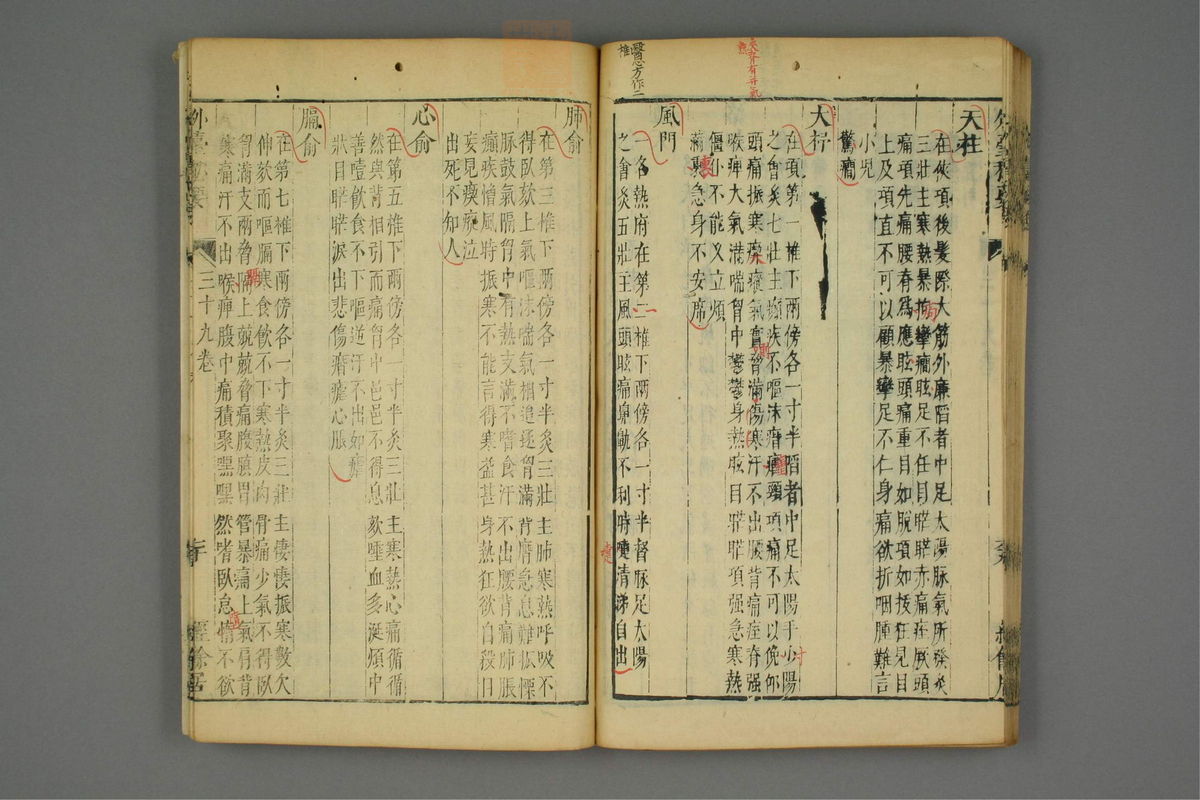 醫心方作二
椎
天柱
在俠項後髮際大筋外廉陷者中足太陽脉氣所發灸
三壯主寒熱暴拘攣癇眩足不任目䀮䀮赤痛痓厥頭
痛項先痛腰脊爲應眩頭痛重目如脫項如拔狂見目
上反項直不可以顧暴攣足不仁身痛欲折咽腫難言
小兒
驚癇
大杼
在項第一椎下兩傍各一寸半陷者中足太陽手少陽
之會灸七壯主癲疾不嘔沫痹瘛頸項痛不可以俛仰
頭痛振寒瘛瘲氣實脅滿傷寒汗不出腰背痛痓脊强
喉痹大氣滿喘胷中鬱鬱身熱眩目䀮䀮項强急寒熱
僵仆不能久立煩
滿裏急身不安席
風門
一名熱府在第二椎下兩傍各一寸半督脉足太陽
之會灸五壯主風頭眩痛鼻鼽不利時嚏清涕自出
肺俞
在第三椎下兩傍各一寸半灸三壯主肺寒熱呼吸不
得臥欬上氣嘔沫喘氣相追逐胷滿背膺急息難振慄
脉鼓氣膈胷中有熱支滿不嗜食汗不出腰背痛肺脹
癲疾憎風時振寒不能言得寒益甚身熱狂欲自殺目
妄見瘈瘲泣
出死不知人
心俞
在第五椎下兩傍各一寸半灸三壯主寒熱心痛循循
然與背相引而痛胷中邑邑不得息欬唾血多涎煩中
善噎飲食不下嘔逆汗不出如瘧
狀目䀮䀮淚出悲傷痹瘧心脹
膈俞
在第七椎下兩傍各一寸半灸三壯主悽悽振寒數欠
伸欬而嘔膈寒食飲不下寒熱皮肉骨痛少氣不得臥
胷滿支兩脅膈上兢兢脅痛腹䐜胃管暴痛上氣肩背
寒痛汗不出喉痹腹中痛積聚嘿嘿然嗜臥怠惰不欲
三十九卷